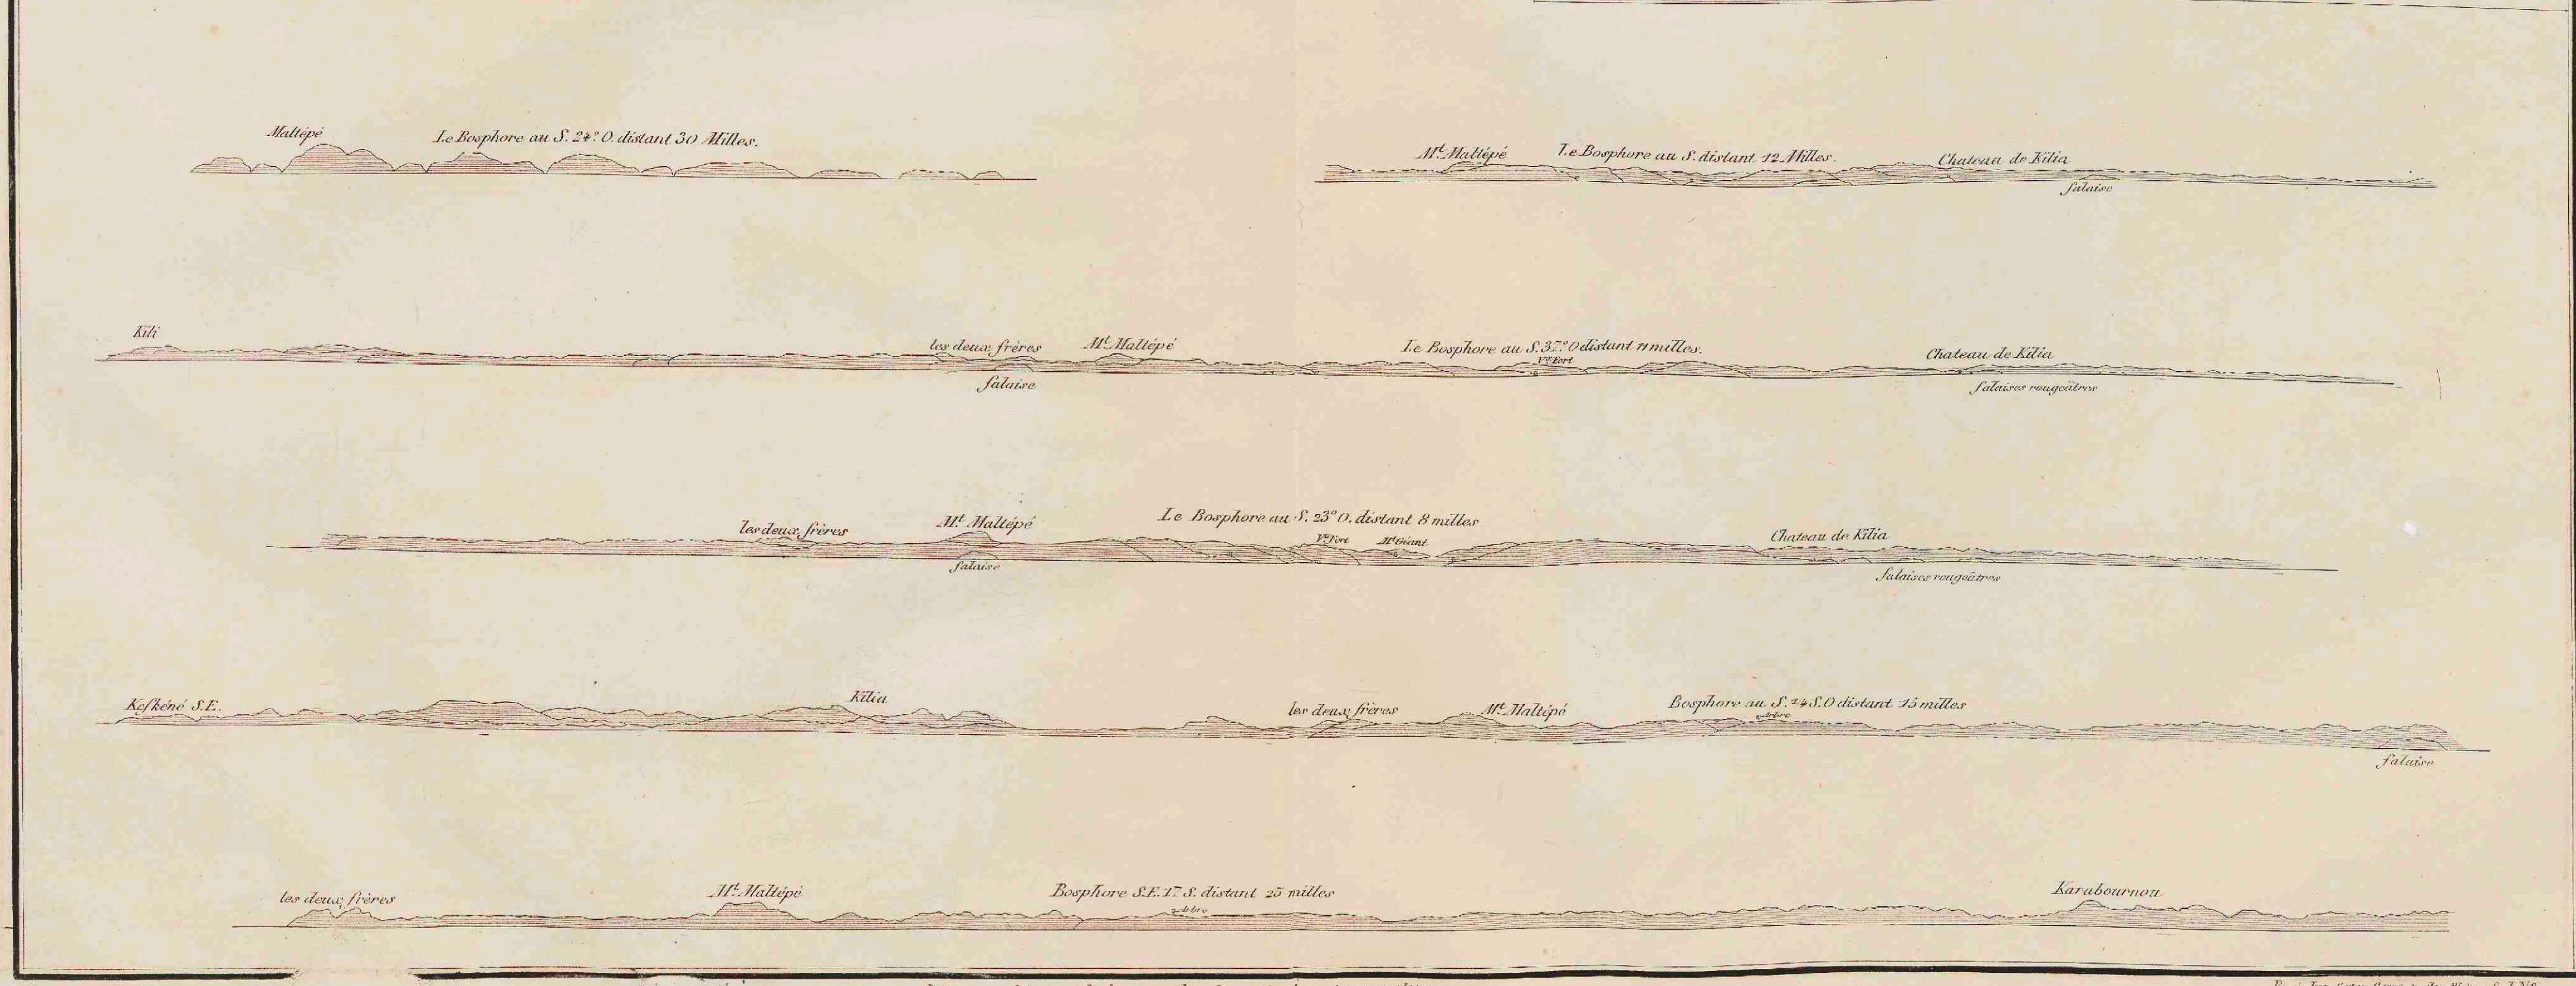 Maltépé
Le Bosphore au S. 24° O. distant 30 Milles.
Mt. Maltépé
Le Bosphore au S. distant 12 Milles.
Chateau de Kilia
falaise
Kili
les deux frères
Mt. Maltépé
Le Bosphore au S. 37° O distant 11 milles.
Vx. Fort
Chateau de Kilia
falaise
falaises rougeâtres
les deux frères
Mt. Maltépé
Le Bosphore au S. 23° O. distant 8 milles
Vx. Fort
Mt. Géant
Chateau de Kilia
falaise
falaises rougeâtres
Kefkéné S.E.
Kilia
les deux frères
Mt. Maltépé
Bosphore au S. 1/4 S.O distant 15 milles
arbre
falaise
les deux frères
Mt. Maltépé
Bosphore S.E. 17 S. distant 25 milles
arbre
Karabournou